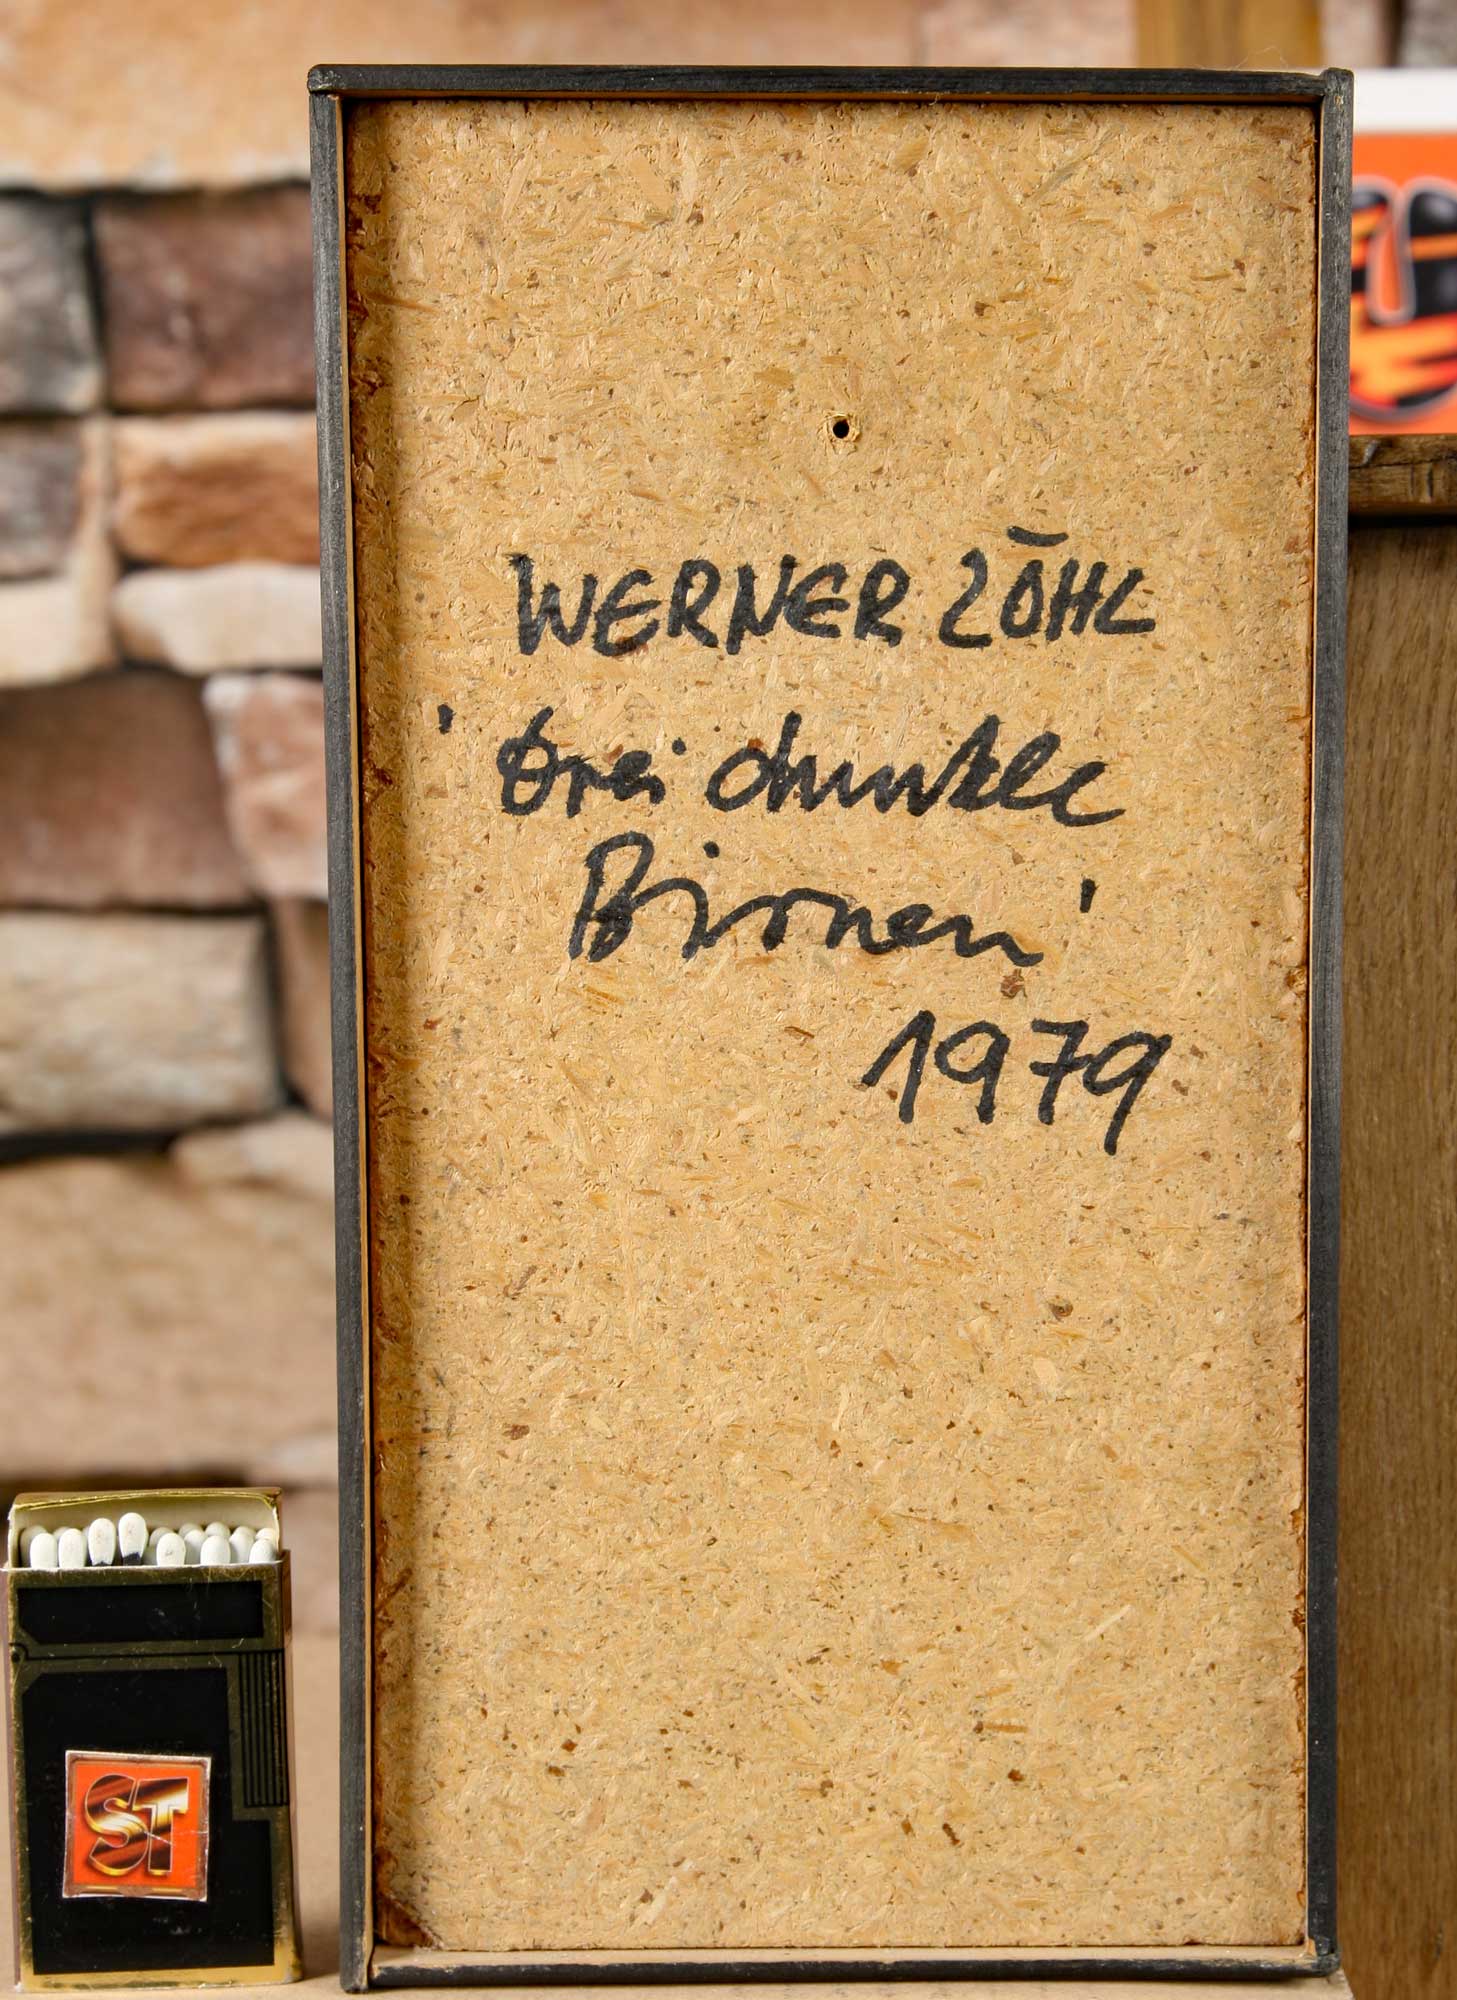 WERNER LÖHL
'Drei dunkle
Birnen'
1979
ST